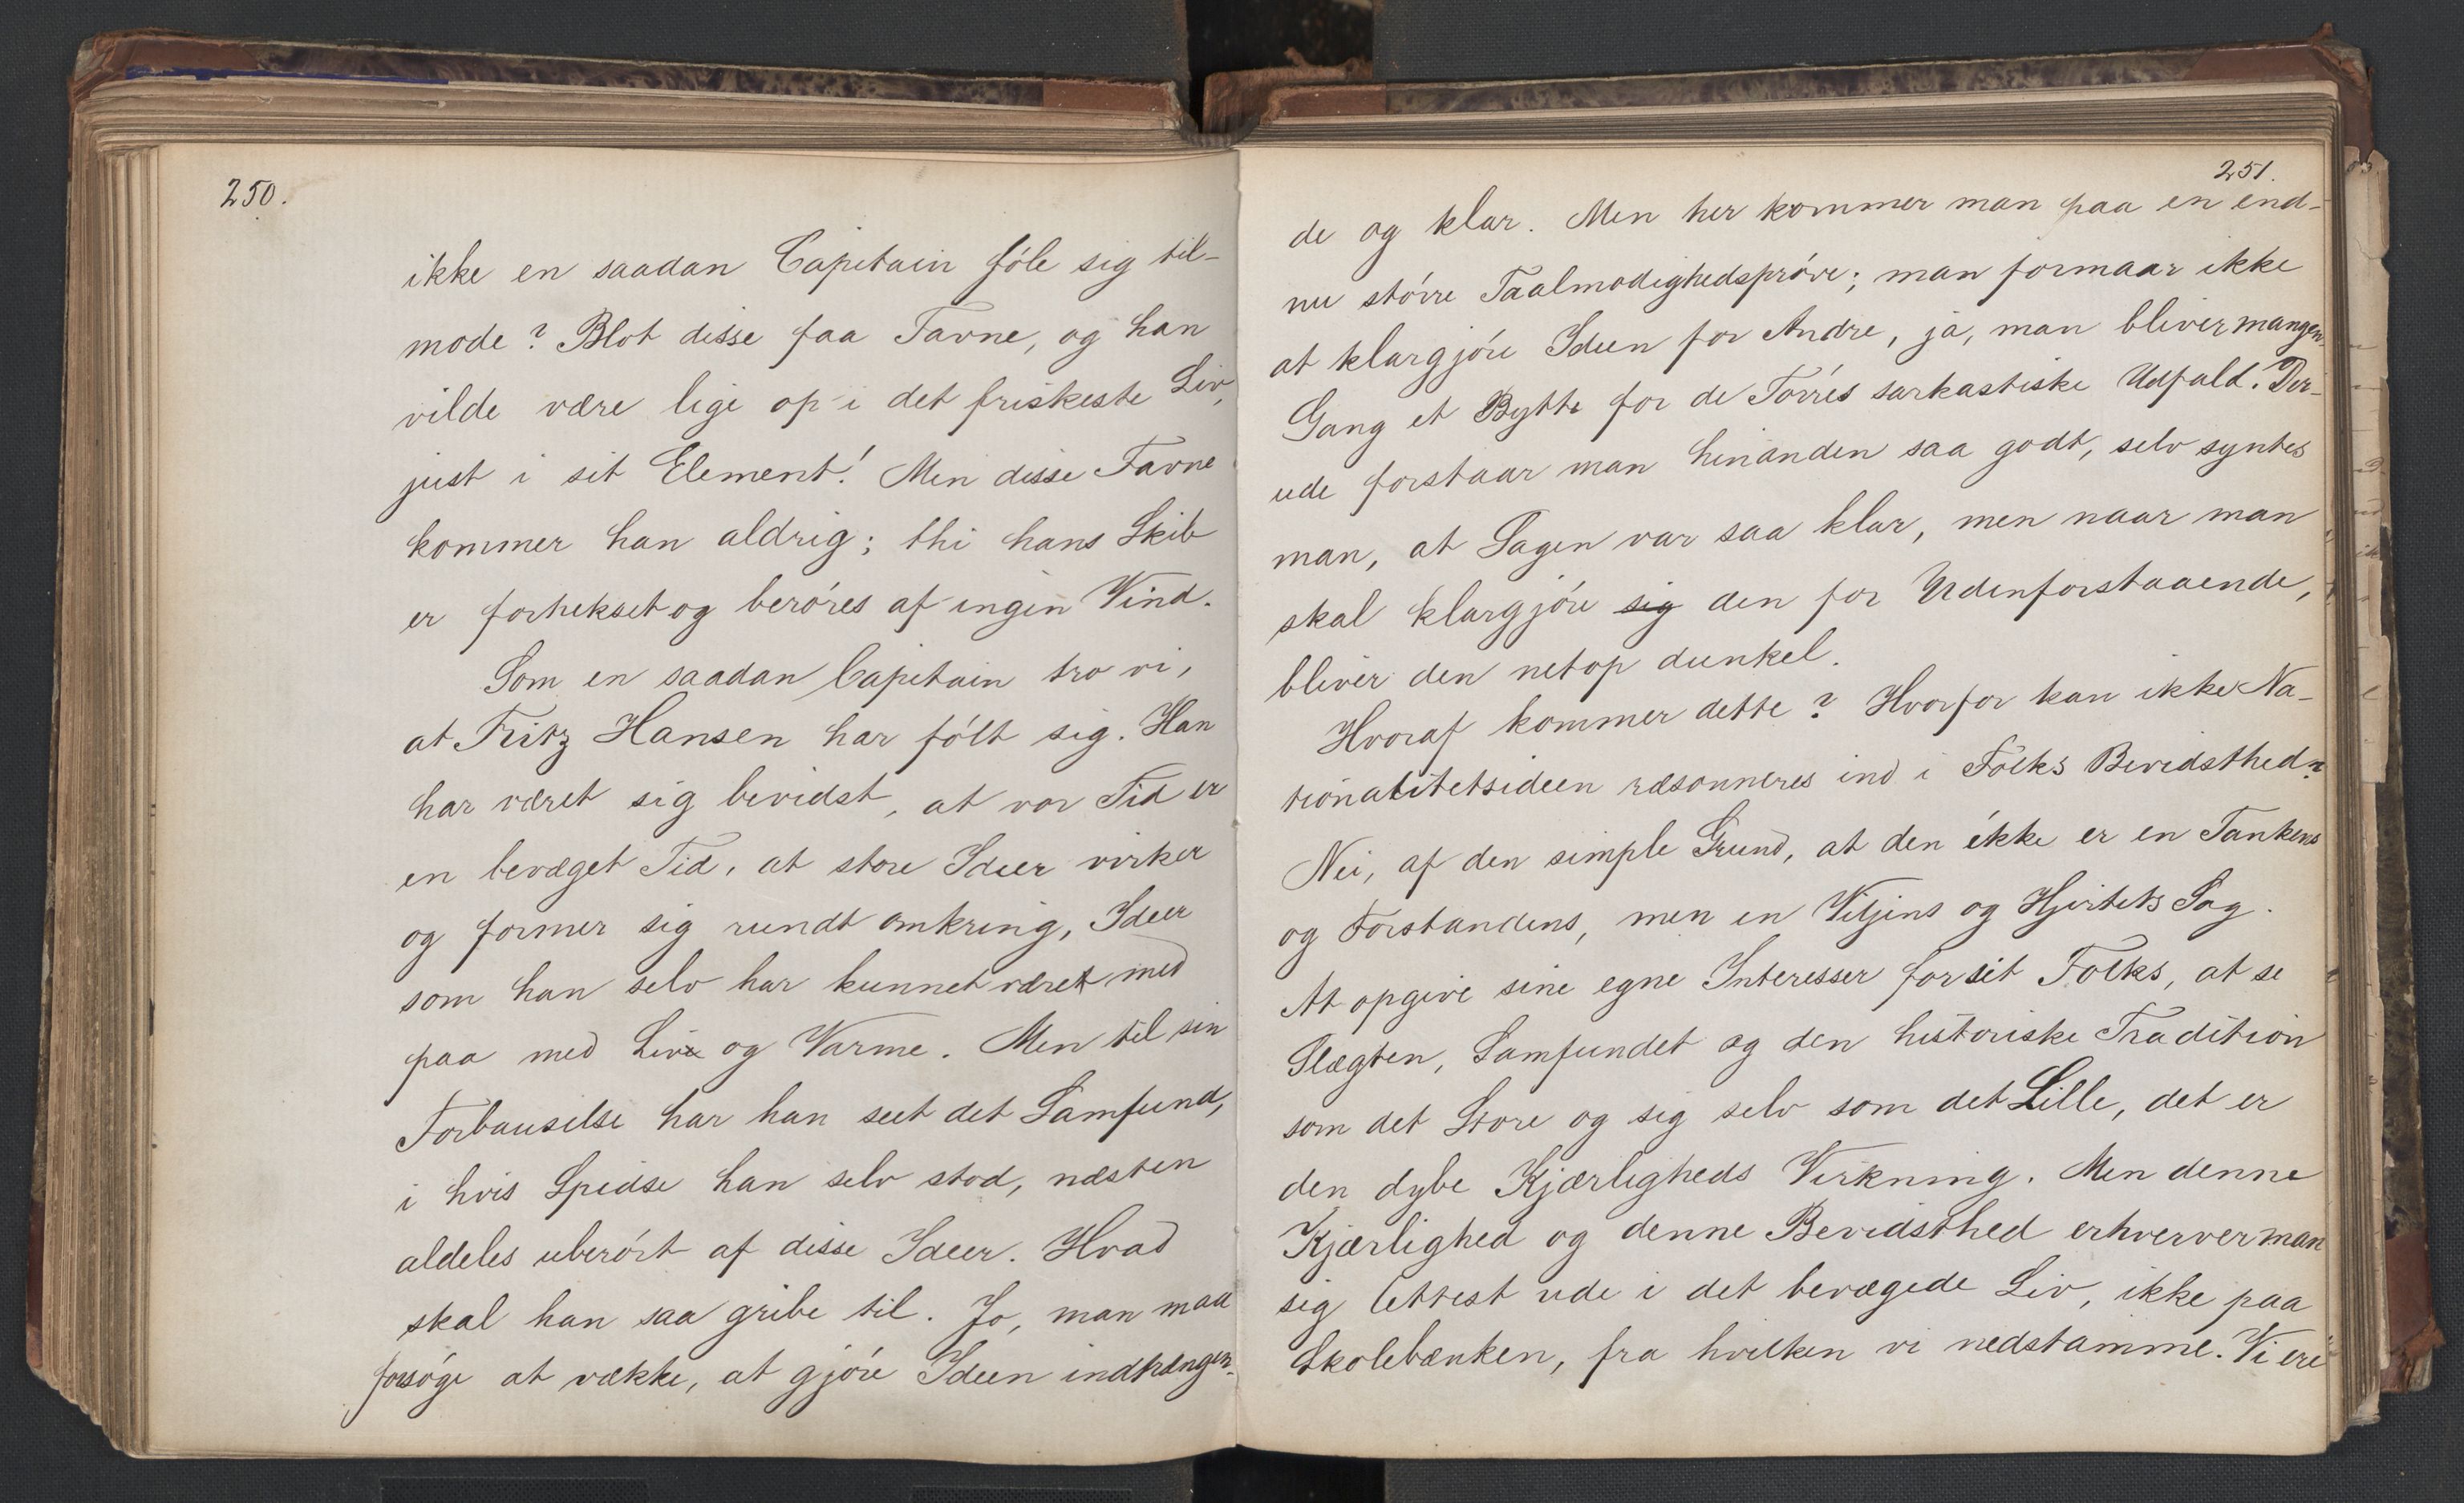 250.
ikke en saadan Capitain føle sig til-
mode? Blot disse faa Favne, og han
vilde være lige op i det friskeste Liv,
just i sit Element! Men disse Favne
kommer han aldrig; thi hans Skib
er forhekset og berøres af ingen Vind.
Som en saadan Capitain tro vi,
at Fritz Hansen har følt sig. Han
har været sig bevidst, at vor Tid er
en bevæget Tid, at store Ideer virker
og former sig rundt omkring, Ideer
som han selv har kunnet været med
paa med Liv og Varme. Men til sin
Forbauselse har han seet det Samfund,
i hvis Spidse han selv stod, næsten
aldeles uberørt af disse Ideer. Hvad
skal han saa gribe til. Jo, man maa
forsøge at vække, at gjøre Ideen indtrængen-
251.
de og klar. Men her kommer man paa en end-
nu større Taalmodighedsprøve; man formaar ikke
at klargjøre Ideen for Andre, ja, man bliver mangen
Gang et Bytte for de Tørres sarkastiske Udfald. Der-
ude forstaar man hinanden saa godt, selv syntes
man, at Sagen var saa klar, men naar man
skal klargjøre sig den for Udenforstaaende,
bliver den netop dunkel.
Hvoraf kommer dette? Hvorfor kan ikke Na-
tionalitetsideen ræsonneres ind i Folks Bevidsthed?
Nei, af den simple Grund, at den ikke er en Tankens
og Forstandens, men en Viljens og Hjertets Sag.
At opgive sine egne Interesser for sit Folks, at se
Slægten, Samfundet og den historiske Tradition
som det Store og sig selv som det Lille, det er
den dybe Kjærligheds Virkning. Men denne
Kjærlighed og denne Bevidsthed erhverver man
sig lettest ude i det bevægede Liv, ikke paa
Skolebænken, fra hvilken vi nedstamme. Vi ere